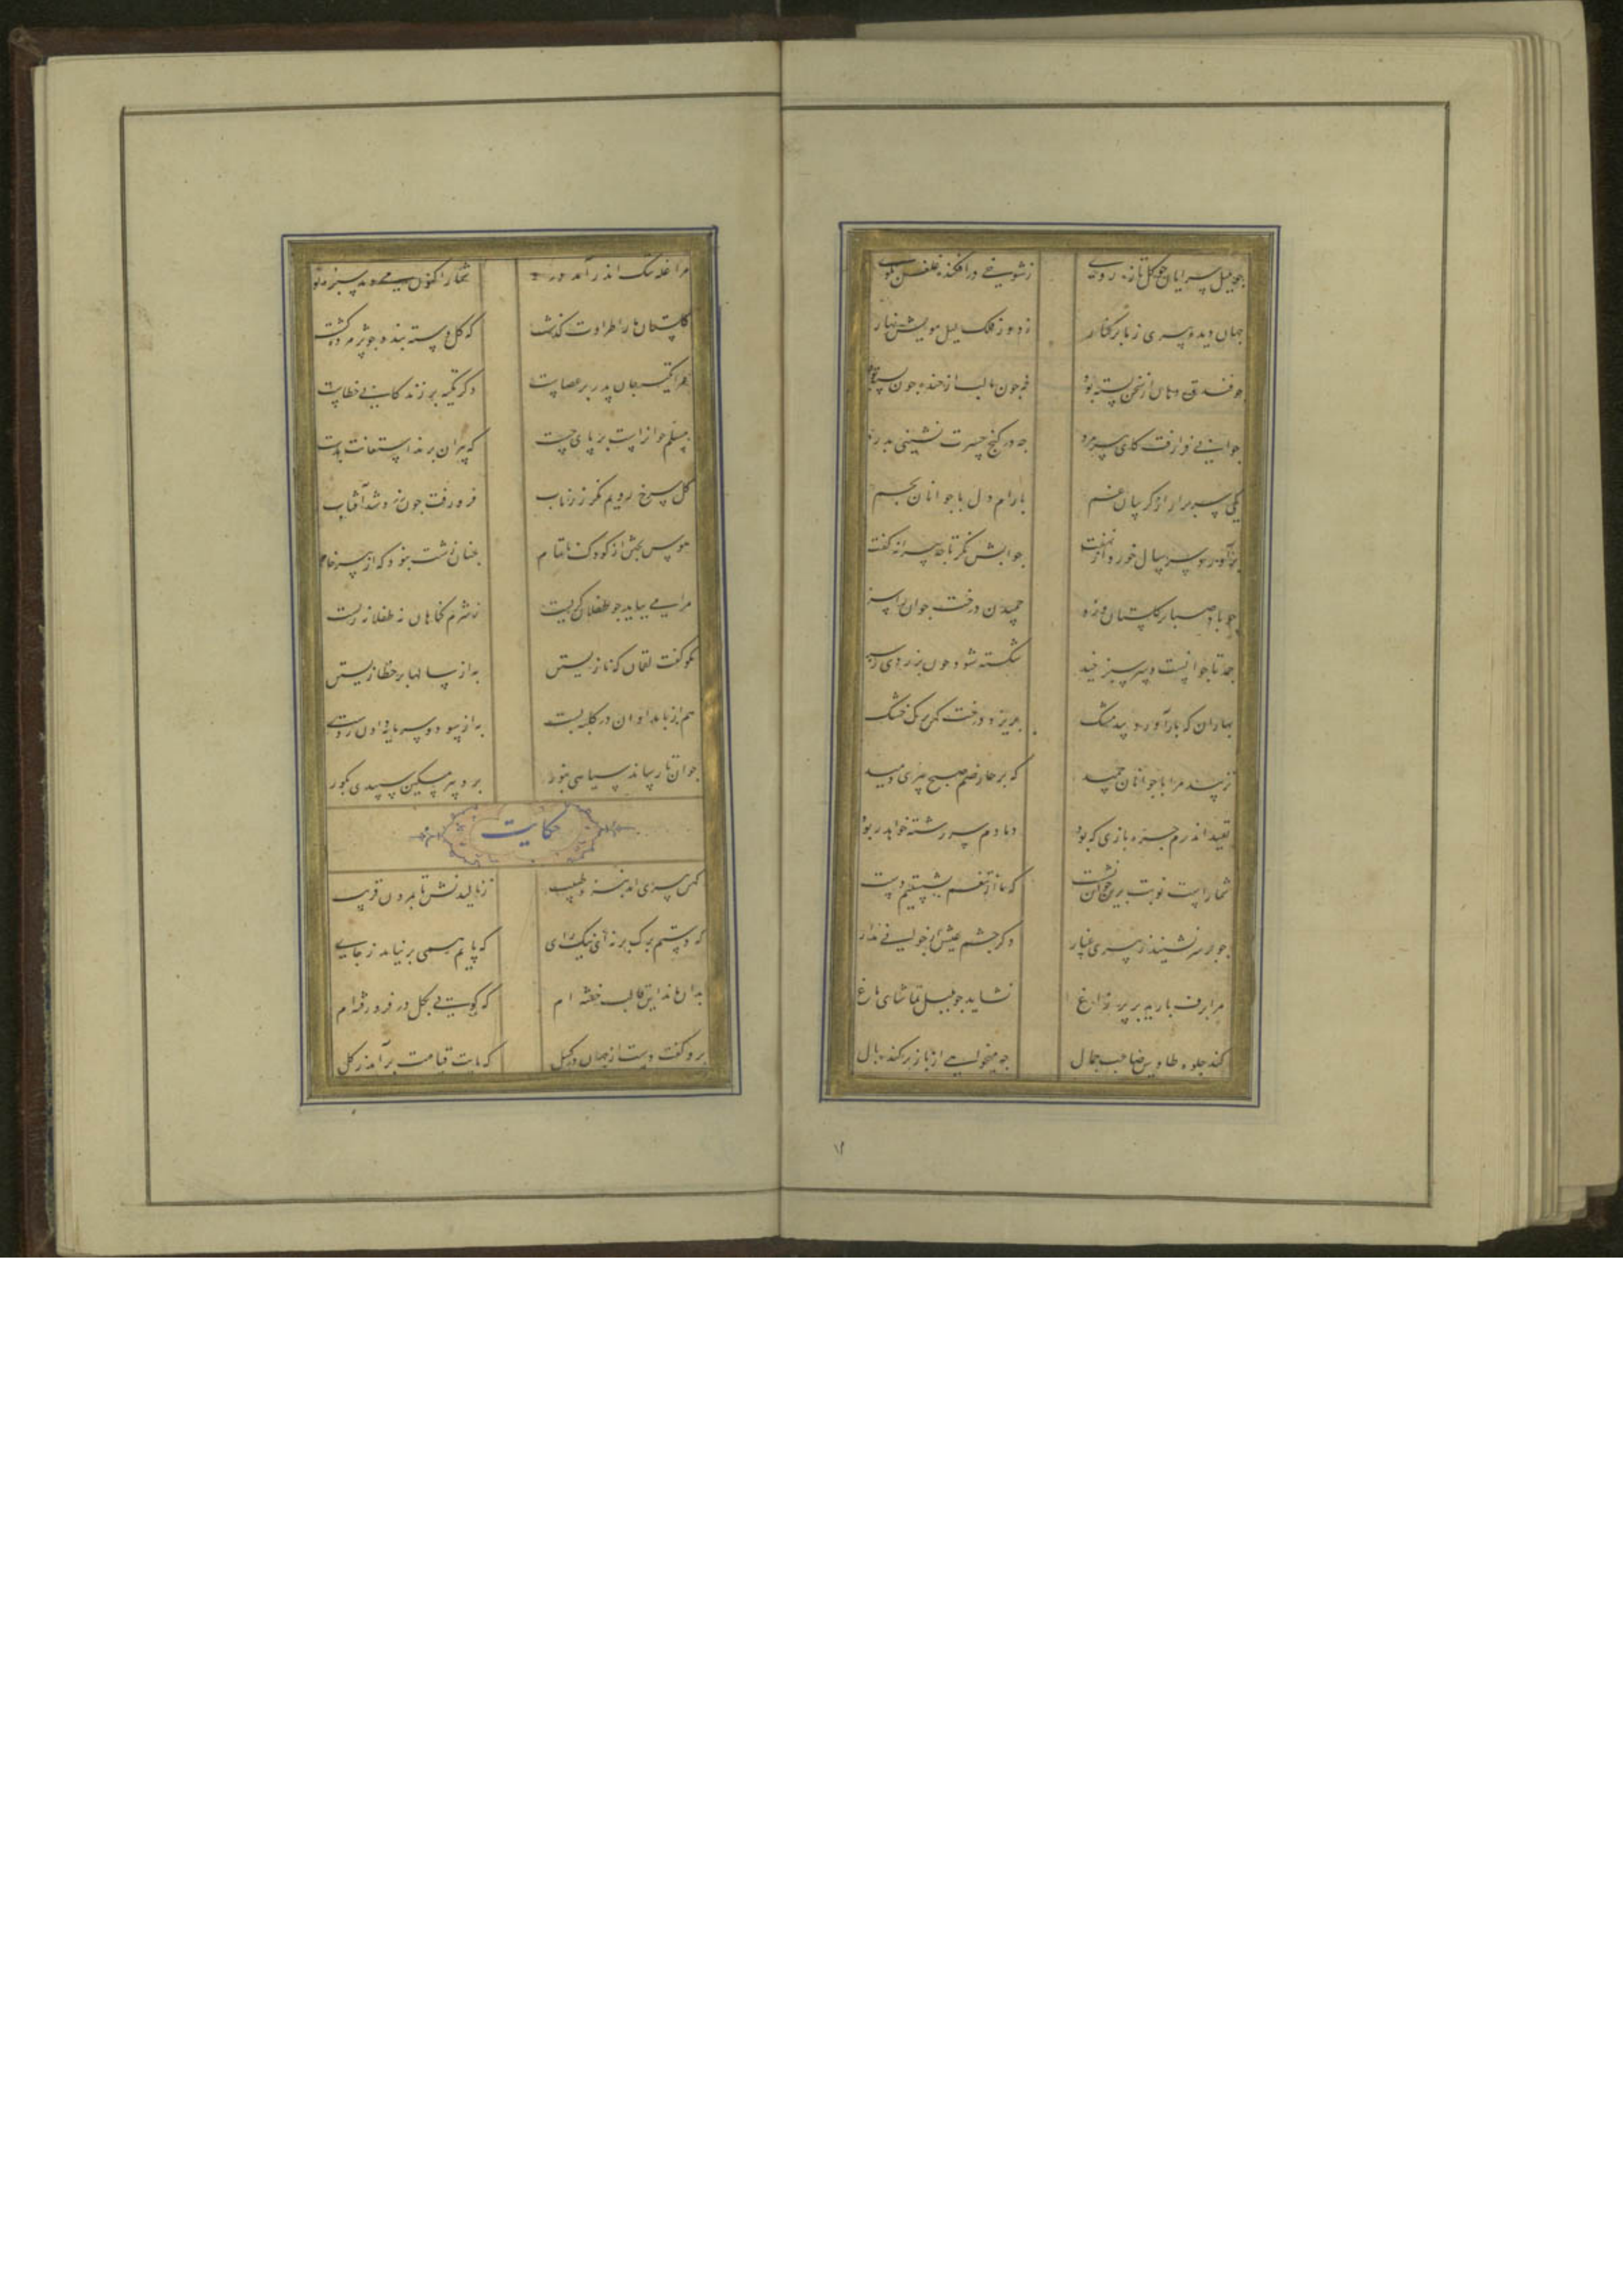 جو بلبل سرایان جو کل تازه روی ز شوخی در افکنده غلغل بکوی
جهان دیده پیری ز ما بر کنار ز دور فلک لیل مویش نهار
جو فندق دهان از سخن بسته بود نه جون ما لب از خنده جون پسته بود
جوانی فرا رفت کای پیرمرد جه در کنج حسرت نشینی بدرد
یکی سر برار از کریبان غم بارام دل با جوانان بچم
برآورد سر سال خورد از نهفت جوابش نکر تا جه پیرانه کفت
جو باد صبا بر کلستان وزد چمیدن درخت جوان را سزد
چمد تا جوانست و سر سبز خید شکسته شود جون بزردی رسید
بهاران که بار آورد بید مشک بریزد درخت کهن برک خشک
نزیبد مرا با جوانان چمید که بر عارضم صبح پیری دمید
بقید اندرم جره بازی که بود دمادم سر رشته خواهد ربود
شما راست نوبت برین خوان نشست که ما از تنعم بشستیم دست
جو بر سر نشیند ز پیری غبار دکر جشم عیش جوانی مدار
مرا برف بارید بر پر زاغ نشاید جو بلبل تماشای باغ
کند جلوه طاوس صاحب جمال جه میخواهی از باز برکنده بال
۱۲
مرا غله تنک اندر آمد درو شما را کنون می دمد سبزه نو
کلستان ما را طراوت کذشت که کل دسته بندد جو پژمرده کشت
مرا تکیه جان پدر بر عصاست دکر تکیه بر زندکانی خطاست
مسلم جوان راست بر پای جست که پیران برند استعانت بدست
کل سرخ رویم نکر زر ناب فرو رفت جون زرد شد آفتاب
هوس پختن از کودک ناتمام چنان زشت نبود که از پیر خام
مرا می بباید جو طفلان کریست ز شرم کناهان نه طفلانه زیست
نکو کفت لقمان که نازیستن به از سالها بر خطا زیستن
هم از بامدادان در کلبه بست به از سود و سرمایه دادن ز دست
جوان تا رساند سیاهی بنور برد پیر مسکین سپیدی بکور
حکایت
کهن سالی آمد بنزد طبیب ز نالیدنش تا بمردن قریب
که دستم برک بر نه ای نیک رای که پایم همی بر نیاید ز جای
بدان ماند این قالب خفته ام که کویی بکل در فرو رفته ام
برو کفت دست از جهان در کسل که پایت قیامت برآید ز کل